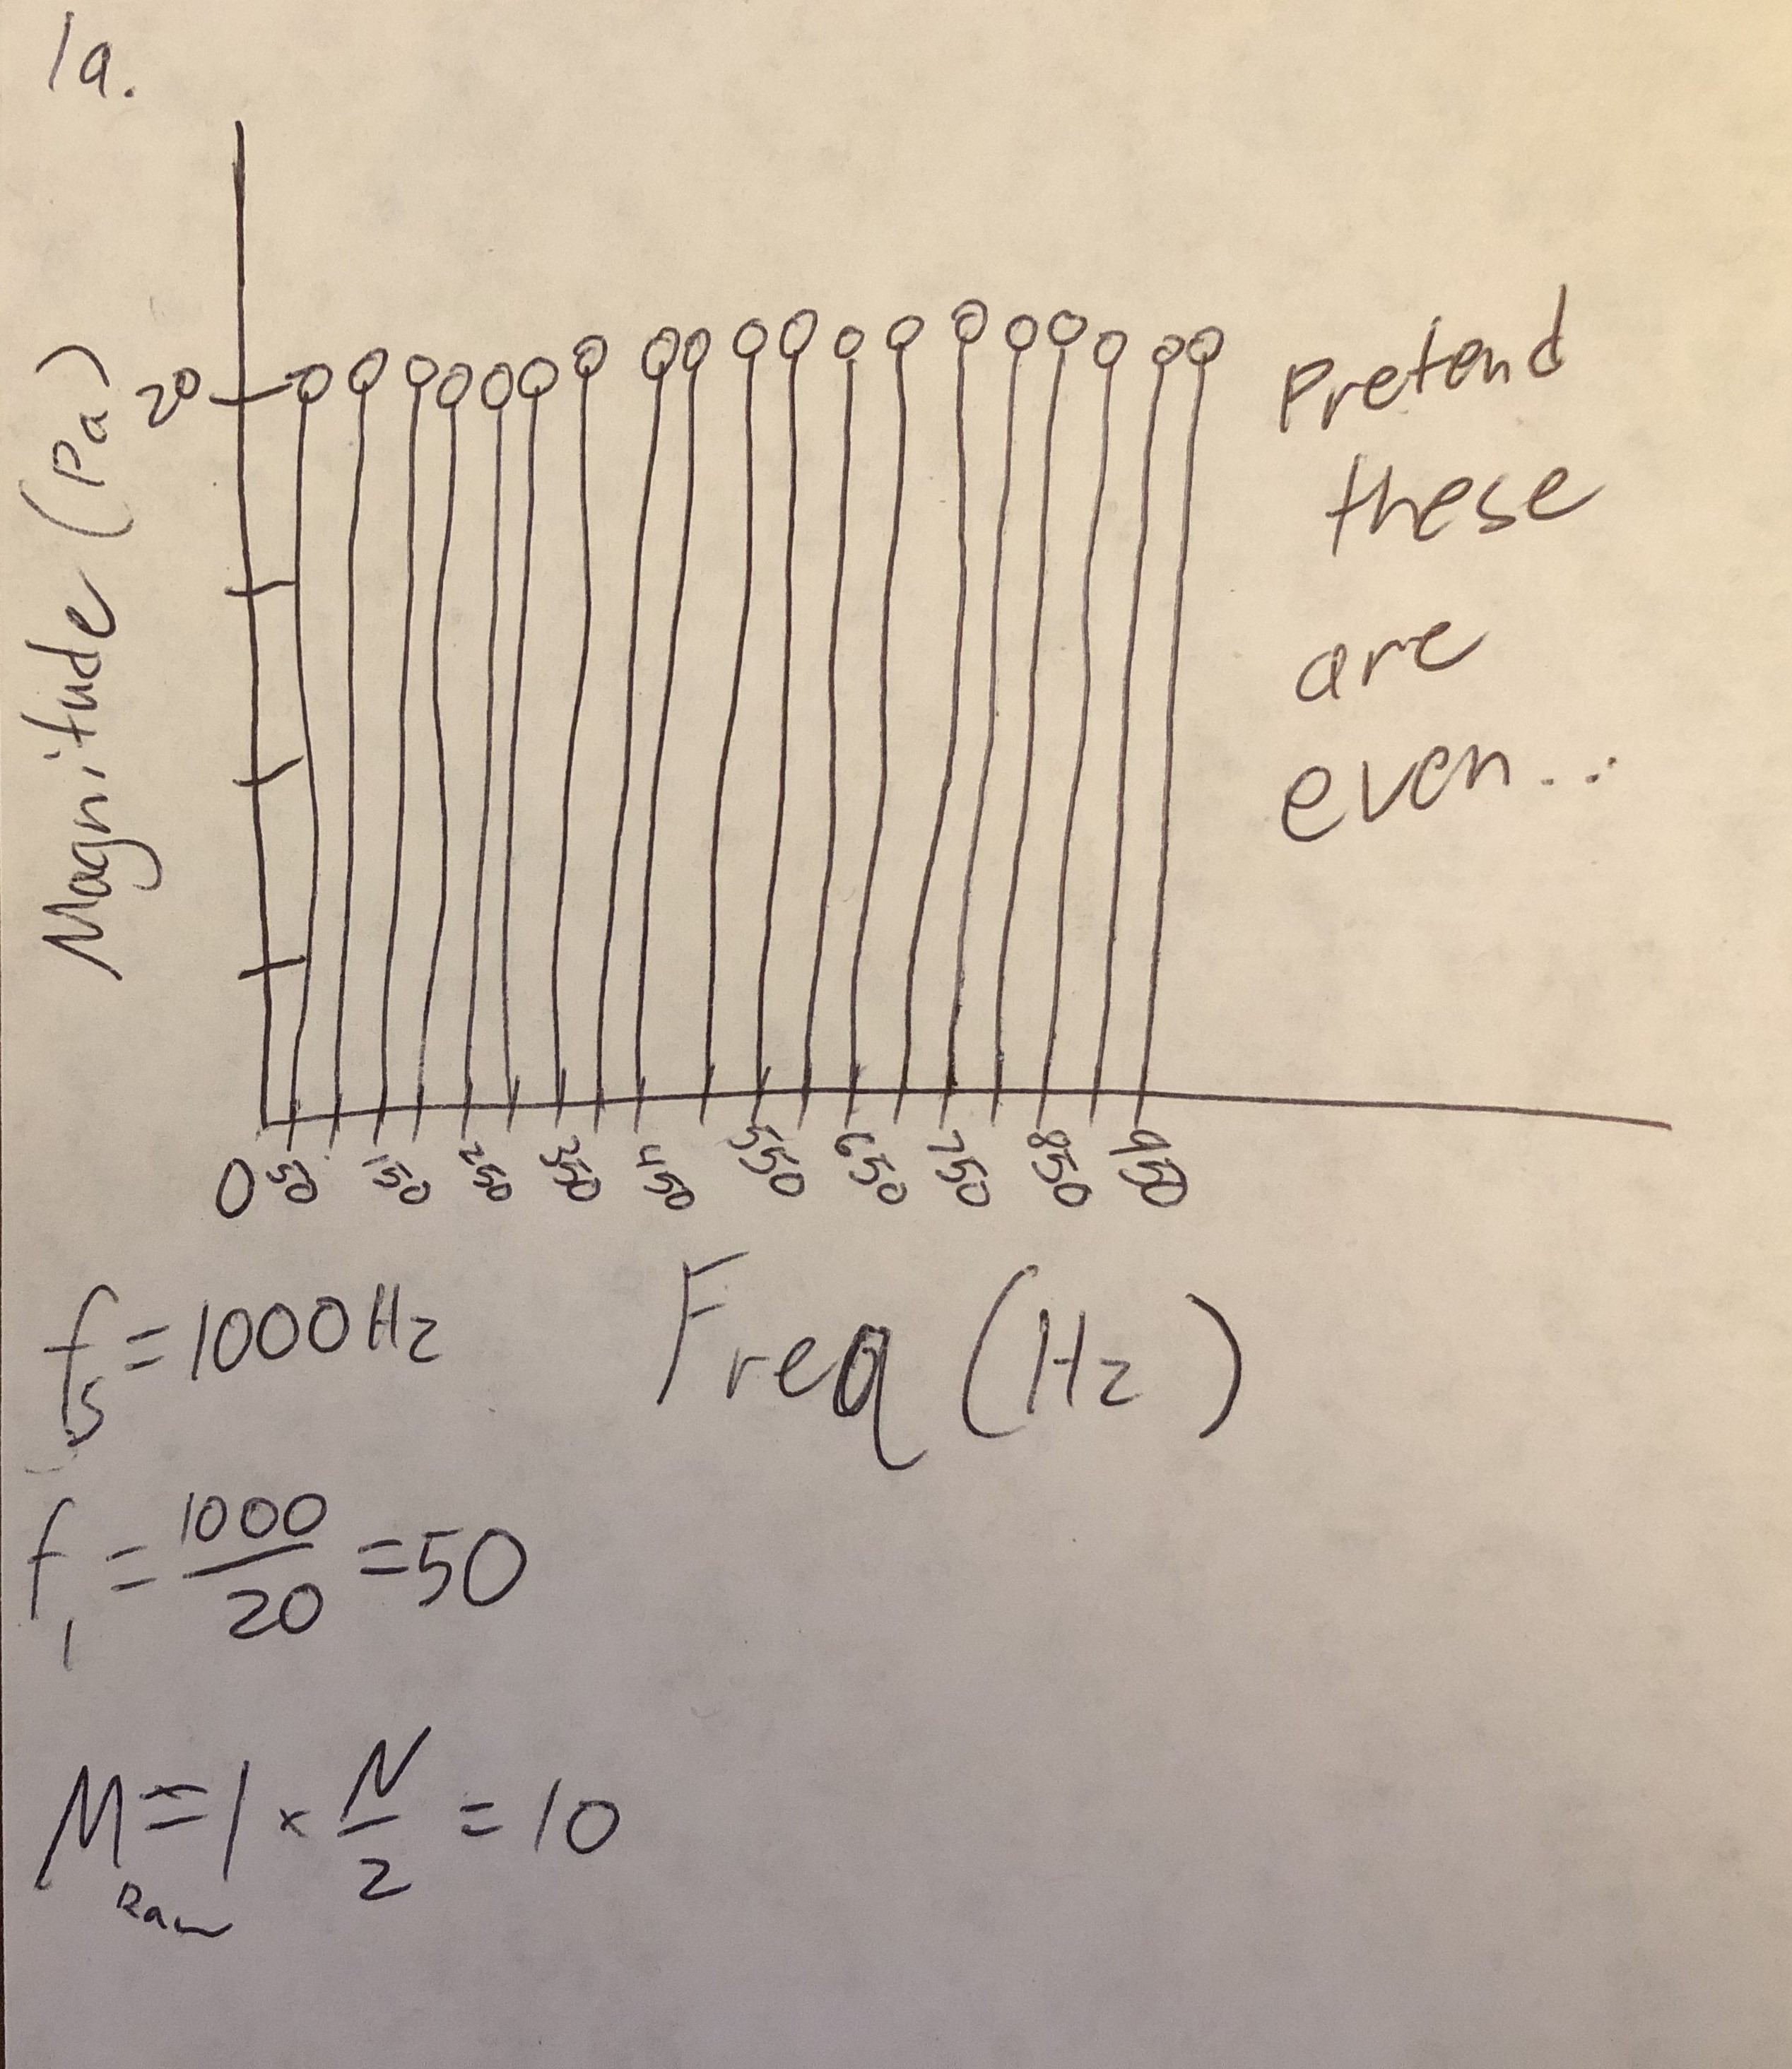 1a.
Magnitude (Pa)
20
Pretend
these
are
even...
0 50 150 250 350 450 550 650 750 850 950
Freq (Hz)
fs = 1000 Hz
f1 = 1000/20 = 50
M Raw = 1 × N/2 = 10